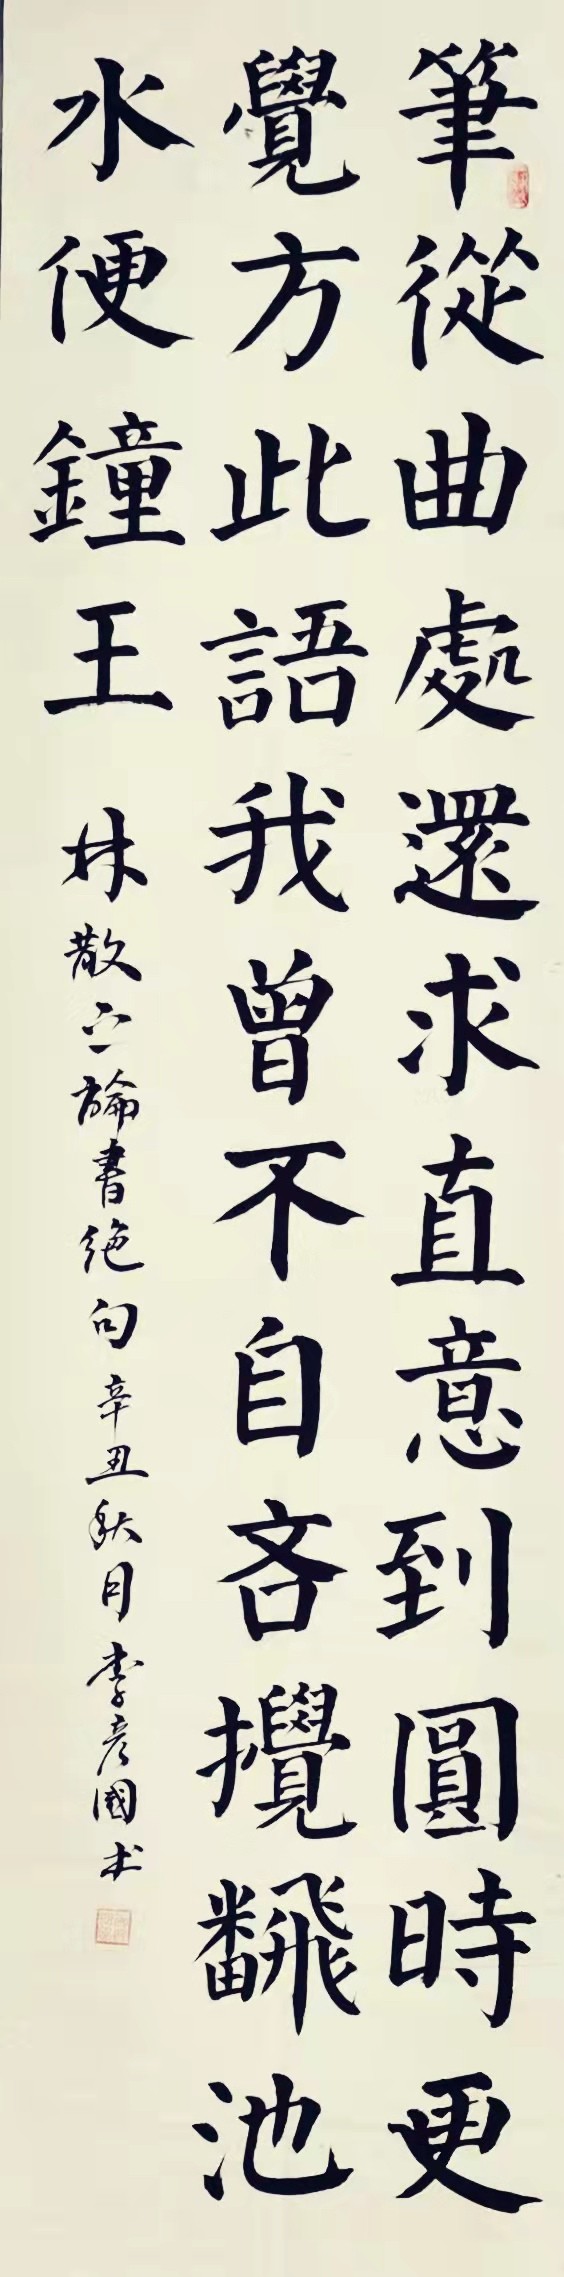 筆從曲處還求直意到圓時更
覺方此語我曾不自吝攪飜池
水便鐘王
林散之論書絕句辛丑秋月李彦國书